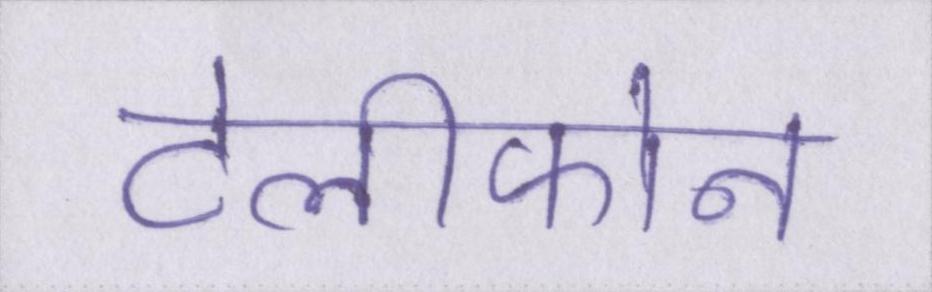 टेलीफोन